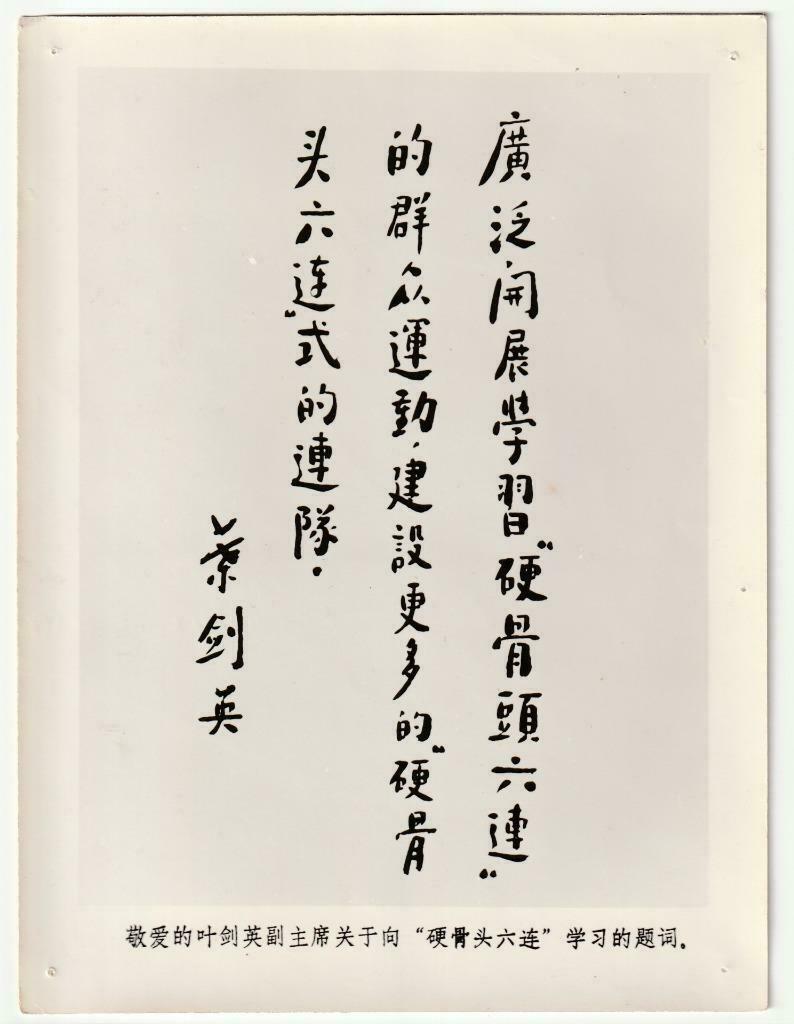 廣泛開展學習“硬骨頭六連”
的群众運動，建設更多的“硬骨
头六连”式的連隊。
葉剑英
敬爱的叶剑英副主席关于向“硬骨头六连”学习的题词。